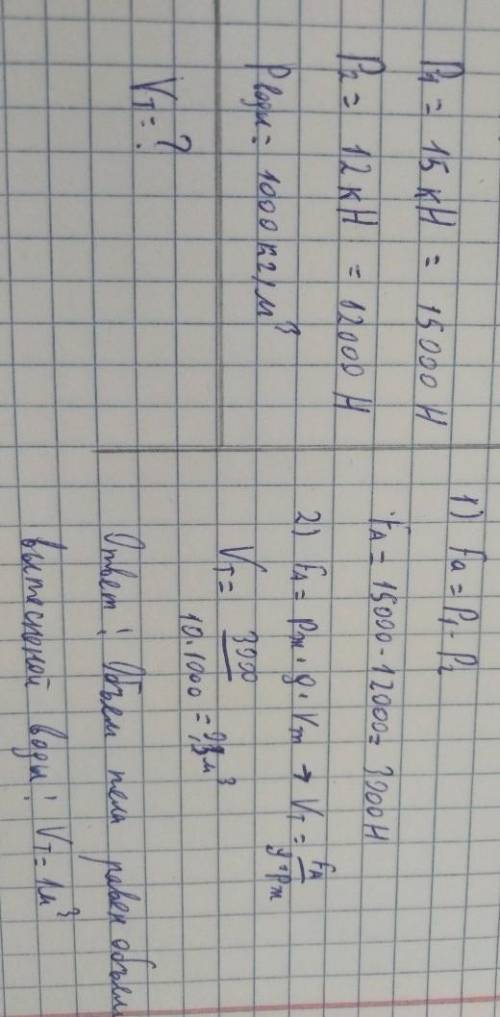 P₁ = 15 кН = 15000 Н
P₂ = 12 кН = 12000 Н
ρ воды = 1000 кг/м³
Vт = ?
1) Fа = P₁ - P₂
FА = 15000 - 12000 = 3000 Н
2) FА = ρж · g · Vт → Vт = FА / g · ρж
Vт = 3000 / 10 · 1000 = 0,3 м³
Ответ: Объем тела равен объем
вытесненой воды: Vт = 1 м³